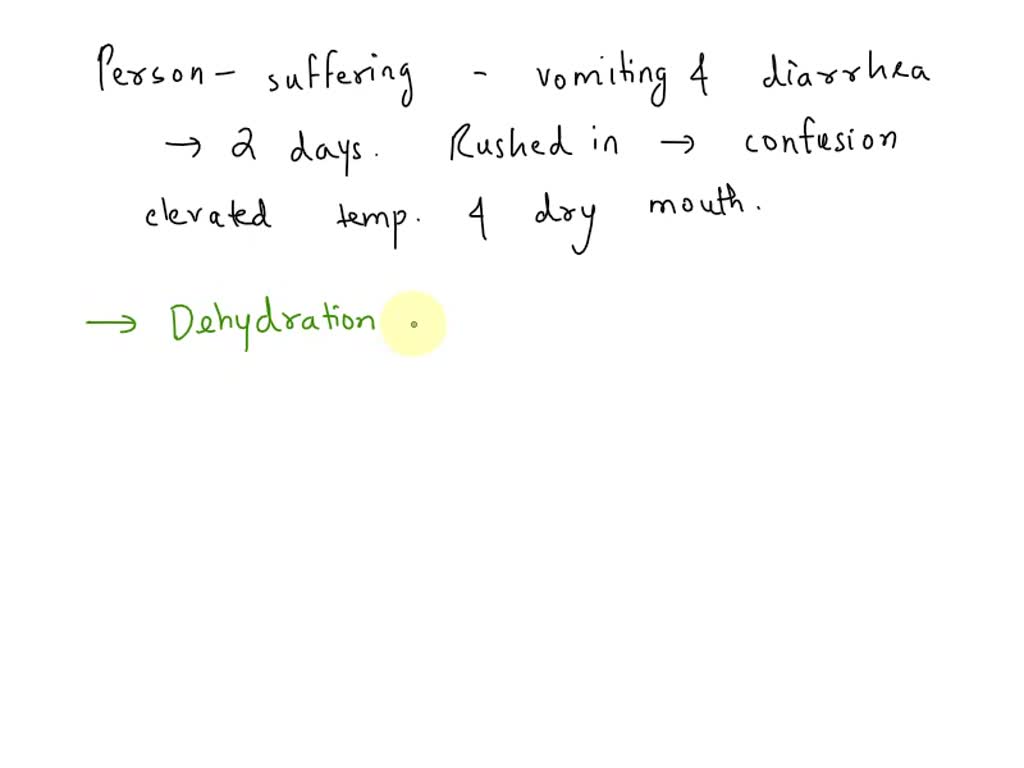 Person - suffering - vomiting & diarrhea
→ 2 days. Rushed in → confusion
elevated temp. & dry mouth.
→ Dehydration